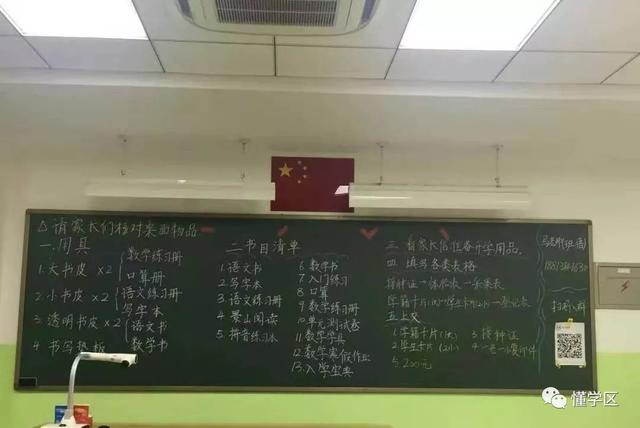 △请家长们核对桌面物品
一.用具
1.大书皮×2 数学练习册
口算册
2.小书皮×2 语文练习册
写字本
3.透明书皮×2 语文书
数学书
4 书写垫板
二.书目清单
1.语文书
2.写字本
3.语文练习册
4.景山阅读
5.拼音练习本
6 数学书
7 入门练习
8 口算
9 数学练习册
10 单元测试卷
11 数学学具
12 数学寒假作业
13.入学宝典
三.请家长们准备开学用品.
四.填写各类表格
五.上交
1.学籍卡片(大)
2.学生卡片(2小)
3 接种证
4.一老一小复印件
5.200元
扫码入群
懂学区